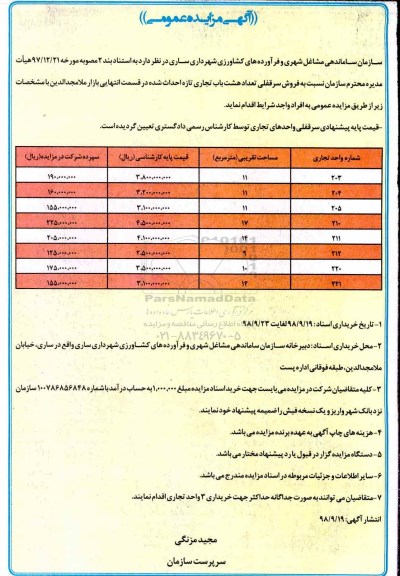 ((آگهی مزایده عمومی))
سازمان ساماندهی مشاغل شهری و فرآورده های کشاورزی شهرداری ساری در نظر دارد به استناد بند ۲ مصوبه مورخه ۹۷/۱۲/۲۱ هیأت
مدیره محترم سازمان نسبت به فروش سرقفلی تعداد هشت باب تجاری تازه احداث شده در قسمت انتهایی بازار ملامجدالدین با مشخصات
زیر از طریق مزایده عمومی به افراد واجد شرایط اقدام نماید.
-قیمت پایه پیشنهادی سرقفلی واحدهای تجاری توسط کارشناس رسمی دادگستری تعیین گردیده است.
شماره واحد تجاری مساحت تقریبی (مترمربع) قیمت پایه کارشناسی (ریال) سپرده شرکت در مزایده(ریال)
۲۰۳ ۱۱ ۳،۸۰۰،۰۰۰،۰۰۰ ۱۹۰،۰۰۰،۰۰۰
۲۰۴ ۱۱ ۳،۲۰۰،۰۰۰،۰۰۰ ۱۶۰،۰۰۰،۰۰۰
۲۰۵ ۱۱ ۳،۱۰۰،۰۰۰،۰۰۰ ۱۵۵،۰۰۰،۰۰۰
۲۱۰ ۱۷ ۴،۵۰۰،۰۰۰،۰۰۰ ۲۲۵،۰۰۰،۰۰۰
۲۱۱ ۱۴ ۴،۱۰۰،۰۰۰،۰۰۰ ۲۰۵،۰۰۰،۰۰۰
۲۱۲ ۹ ۲،۵۰۰،۰۰۰،۰۰۰ ۱۲۵،۰۰۰،۰۰۰
۲۲۰ ۱۰ ۳،۵۰۰،۰۰۰،۰۰۰ ۱۷۵،۰۰۰،۰۰۰
۲۲۱ ۱۲ ۳،۱۰۰،۰۰۰،۰۰۰ ۱۵۵،۰۰۰،۰۰۰
ParsNamadData
پایگاه اطلاع رسانی مناقصه و مزایده
۰۲۱-۸۸۳۴۹۶۷۰-۵
۱- تاریخ خریداری اسناد: ۹۸/۹/۱۹ لغایت ۹۸/۹/۲۳
۲-محل خریداری اسناد: دبیرخانه سازمان ساماندهی مشاغل شهری و فرآورده های کشاورزی شهرداری ساری واقع در ساری، خیابان
ملامجدالدین، طبقه فوقانی اداره پست
۳-کلیه متقاضیان شرکت در مزایده می بایست جهت خرید اسناد مزایده مبلغ ۱،۰۰۰،۰۰۰ به حساب درآمد با شماره ۱۰۰۷۸۶۸۵۶۸۴۸ سازمان
نزد بانک شهر واریز و یک نسخه فیش را ضمیمه پیشنهاد خود نمایند.
۴-هزینه های چاپ آگهی به عهده برنده مزایده می باشد.
۵-دستگاه مزایده گزار در قبول یا رد پیشنهاد مختار می باشد.
۶-سایر اطلاعات و جزئیات مربوطه در اسناد مزایده مندرج می باشد.
۷-متقاضیان می توانند به صورت جداگانه حداکثر جهت خریداری ۳ واحد تجاری اقدام نمایند.
انتشار آگهی: ۹۸/۹/۱۹
مجید مزنگی
سرپرست سازمان